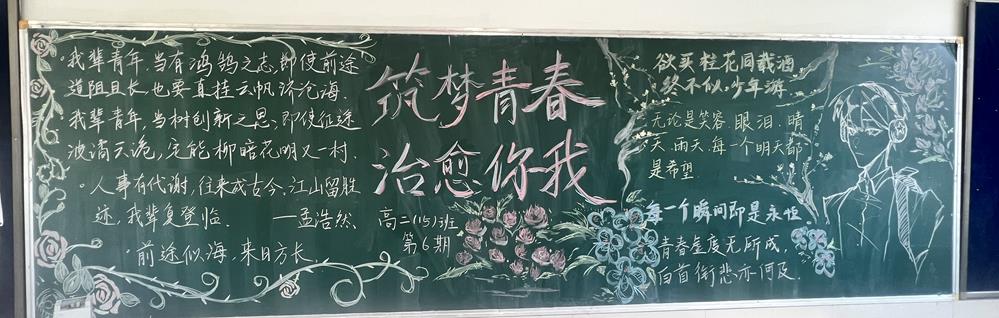 ·我辈青年,当有鸿鹄之志,即使前途
道阻且长,也要直挂云帆济沧海.
我辈青年,当树创新之思,即使征途
波谲云诡,定能柳暗花明又一村.
·人事有代谢,往来成古今,江山留胜
迹,我辈复登临. ——孟浩然
·前途似海,来日方长.
筑梦青春
治愈你我
高二(15)班
第6期
欲买桂花同载酒
终不似,少年游
无论是笑容、眼泪、晴
天、雨天,每一个明天都
是希望
每一个瞬间即是永恒
青春虚度无所成,
白首衔悲亦何及